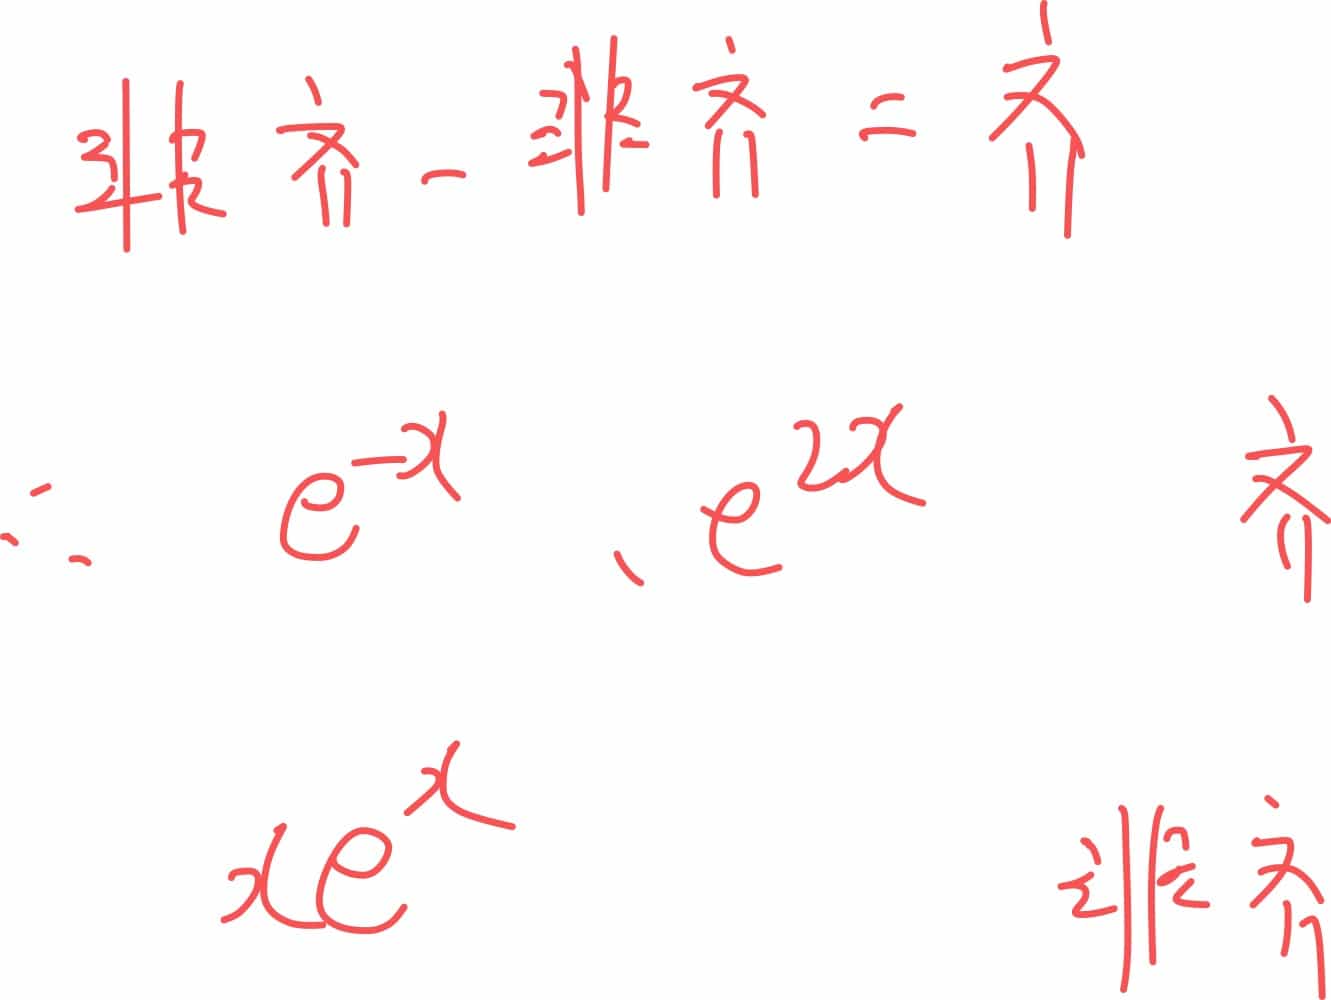 非齐 - 非齐 = 齐
∴ e^{-x}、e^{2x} 齐
xe^{x} 非齐